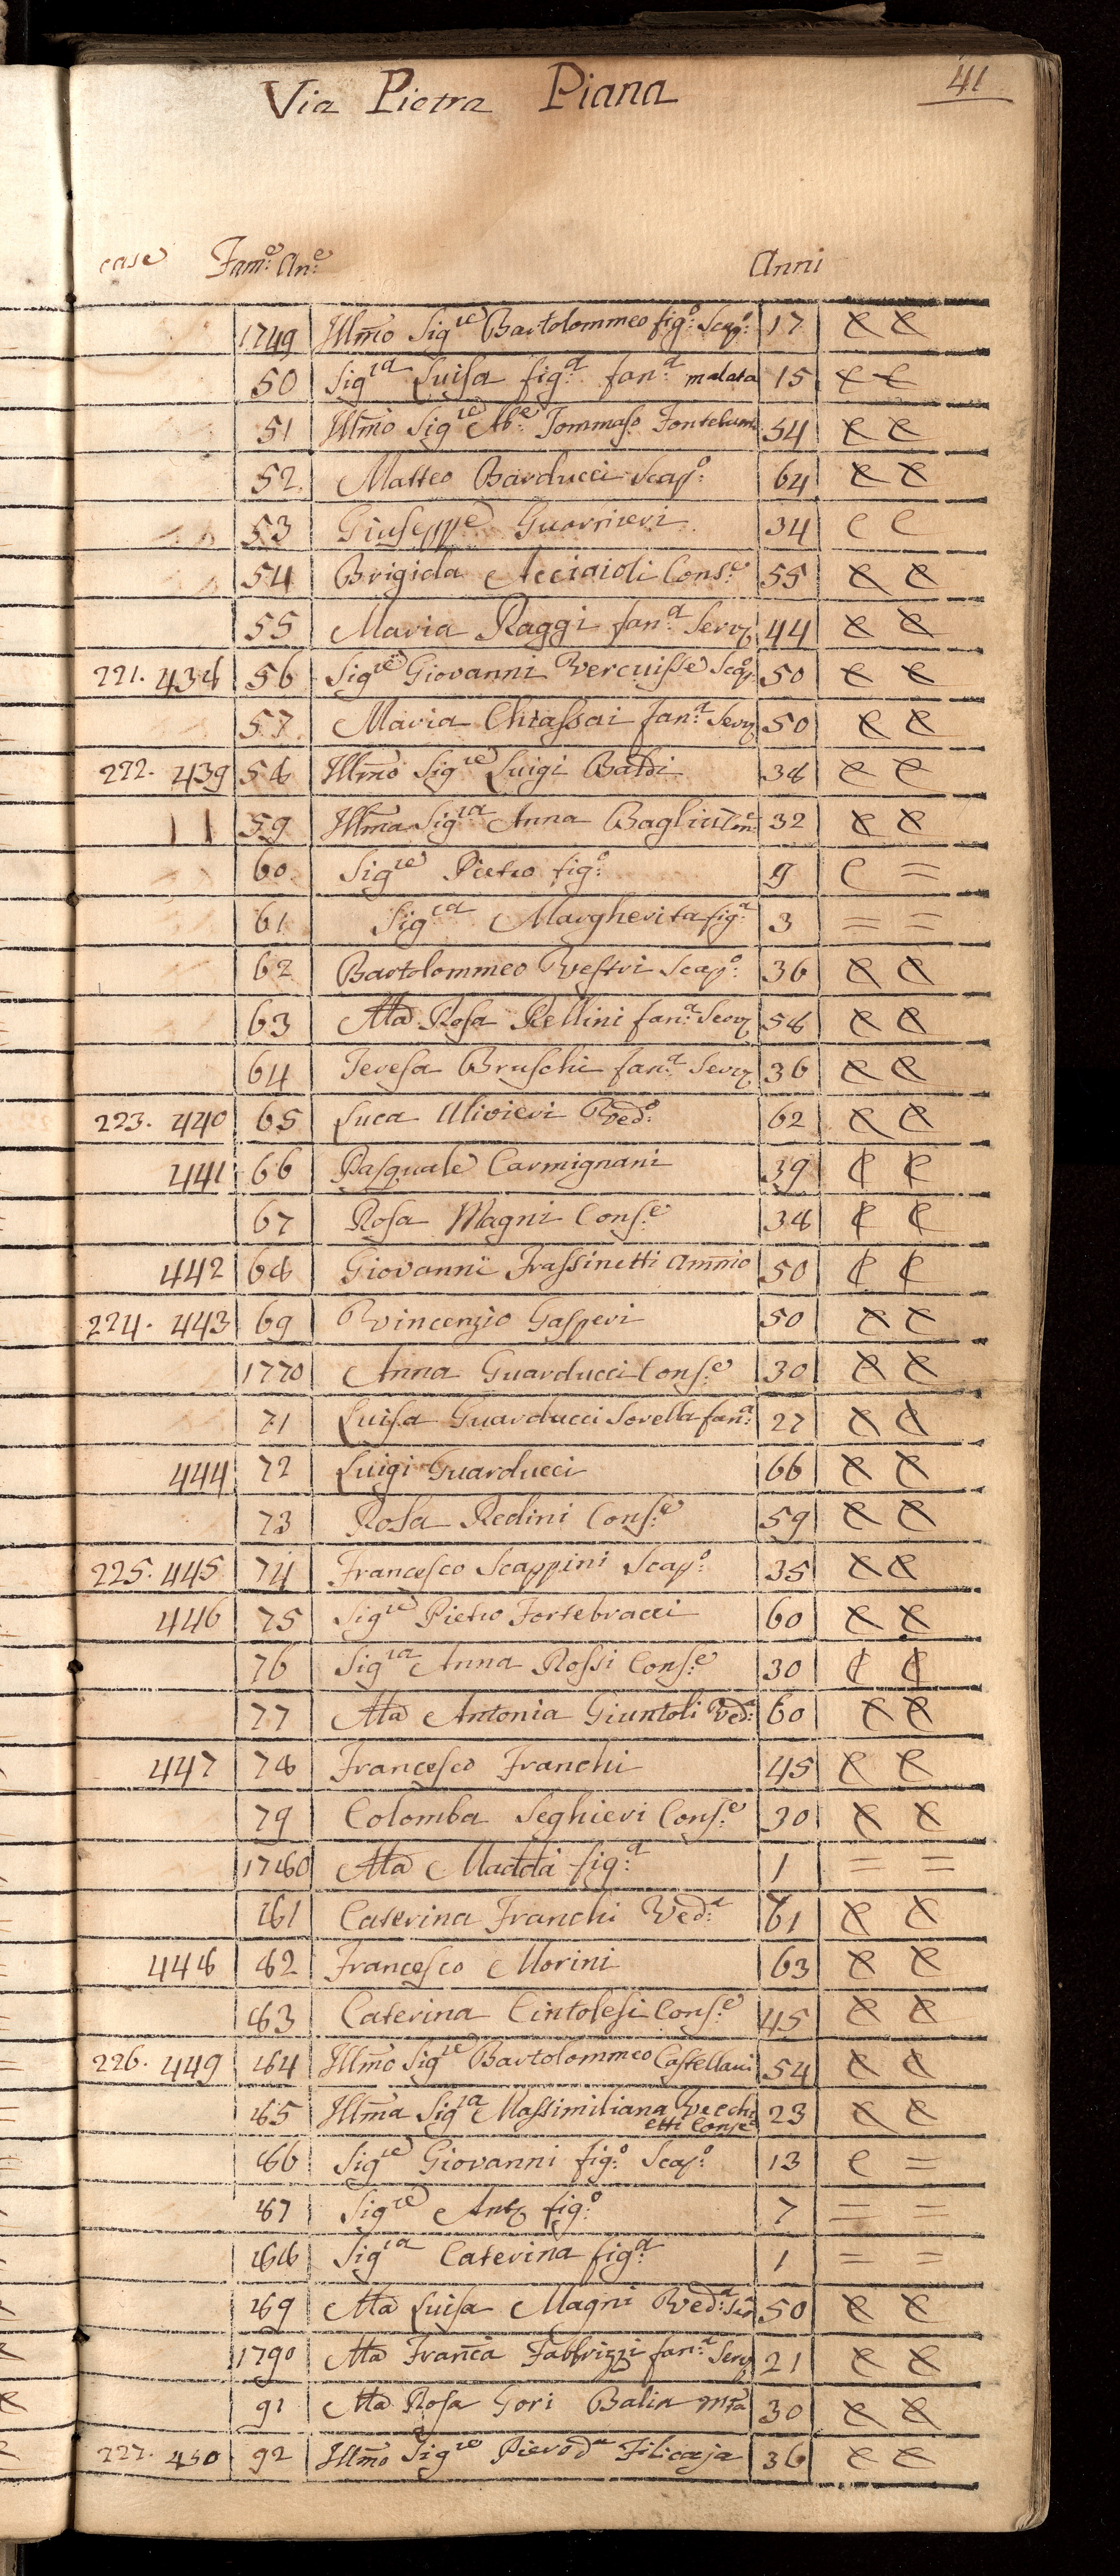 Via Pietra Piana
41
case Fam:e An:e Anni
1749 Illmo Sigre Bartolommeo fig:o Scap:o 17 C C
50 Sigra Luisa fig:a fan:a malata 15 C C
51 Illmo Sigre Ab:e Tommaso Fontebuoni 54 C C
52 Matteo Barducci Scap:o 64 C C
53 Giuseppe Guarnieri 34 C C
54 Brigida Acciaioli Cons:e 55 C C
55 Maria Raggi fan:a Serv 44 C C
221. 438 56 Sigre Giovanni Vercuisse Scap:o 50 C C
57 Maria Chiassai fan:a Serv 50 C C
222. 439 58 Illmo Sigre Luigi Baldi 38 C C
59 Illma Sigra Anna 32 C C
60 Sigre Pietro fig:o 9 C =
61 Sigra Margherita fig:a 3 = =
62 Bartolommeo Vestri Scap:o 36 C C
63 Ma Rosa Rellini fan:a Serv 58 C C
64 Teresa Bruschi fan:a Serv 36 C C
223. 440 65 Luca Ulivieri Ved:o 62 C C
441 66 Pasquale Carmignani 39 C C
67 Rosa Magni Cons:e 38 C C
442 68 Giovanni Frassinetti Ammio 50 C C
224. 443 69 Vincenzio Gasperi 50 C C
1770 Anna Guarducci Cons:e 30 C C
71 Luisa Guarducci Sorella fan:a 27 C C
444 72 Luigi Guarducci 66 C C
73 Rosa Redini Cons:e 59 C C
225. 445 74 Francesco Scappini Scap:o 35 C C
446 75 Sigre Pietro Fortebracci 60 C C
76 Sigra Anna Rossi Cons:e 30 C C
77 Ma Antonia Giuntoli Ved:a 60 C C
447 78 Francesco Franchi 45 C C
79 Colomba Seghieri Cons:e 30 C C
1780 Ma Madda fig:a 1 = =
81 Caterina Franchi Ved:a 61 C C
448 82 Francesco Morini 63 C C
83 Caterina Cintolesi Cons:e 45 C C
226. 449 84 Illmo Sigre Bartolommeo Castellani 54 C C
85 Illma Sigra Massimiliana Vecchi
etti Conse 23 C C
86 Sigre Giovanni fig:o Scap:o 13 C =
87 Sigre Anto fig:o 7 = =
88 Sigra Caterina fig:a 1 = =
89 Ma Luisa Magni Ved:a 50 C C
1790 Ma Franca Fabbrizzi fan:a Serv 21 C C
91 Ma Rosa Gori Balia 30 C C
227. 450 92 Illmo Sigre Piero da Filicaja 36 C C